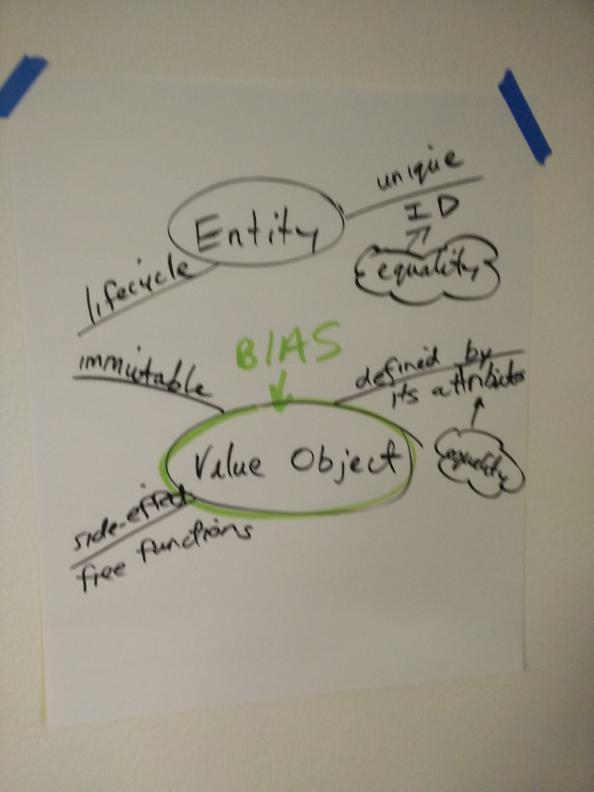 unique
ID
Entity
equality
lifecycle
BIAS
immutable
defined by
its attributes
Value Object
equality
side-effect
free functions